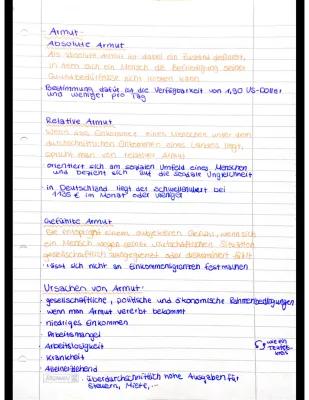 Armut
Absolute Armut
Als absolute Armut ist dabei ein Zustand definiert,
in dem sich ein Mensch die Befriedigung seiner
Grundbedürfnisse nicht leisten kann
Bestimmung dafür ist die Verfügbarkeit von 1,90 US-Dollar
und weniger pro Tag
Relative Armut
Wenn das Einkommen eines Menschen unter dem
durchschnittlichen Einkommen eines Landes liegt,
spricht man von relativer Armut
orientiert sich am sozialen Umfeld eines Menschen
und bezieht sich auf die soziale Ungleichheit
in Deutschland liegt der Schwellenwert bei
1135 € im Monat oder weniger
Gefühlte Armut
Sie entspringt einem subjektiven Gefühl, wenn sich
ein Mensch wegen seiner wirtschaftlichen Situation
gesellschaftlich ausgegrenzt oder diskriminiert fühlt
lässt sich nicht an Einkommensgrenzen festmachen
Ursachen von Armut:
• gesellschaftliche, politische und ökonomische Rahmenbedingungen
• wenn man Armut vererbt bekommt
• niedriges Einkommen
• Arbeitsmangel
• Arbeitslosigkeit
wie ein
Teufels-
kreis
• Krankheit
• Alleinerziehend
• überdurchschnittlich hohe Ausgaben für
Steuern, Miete, ...